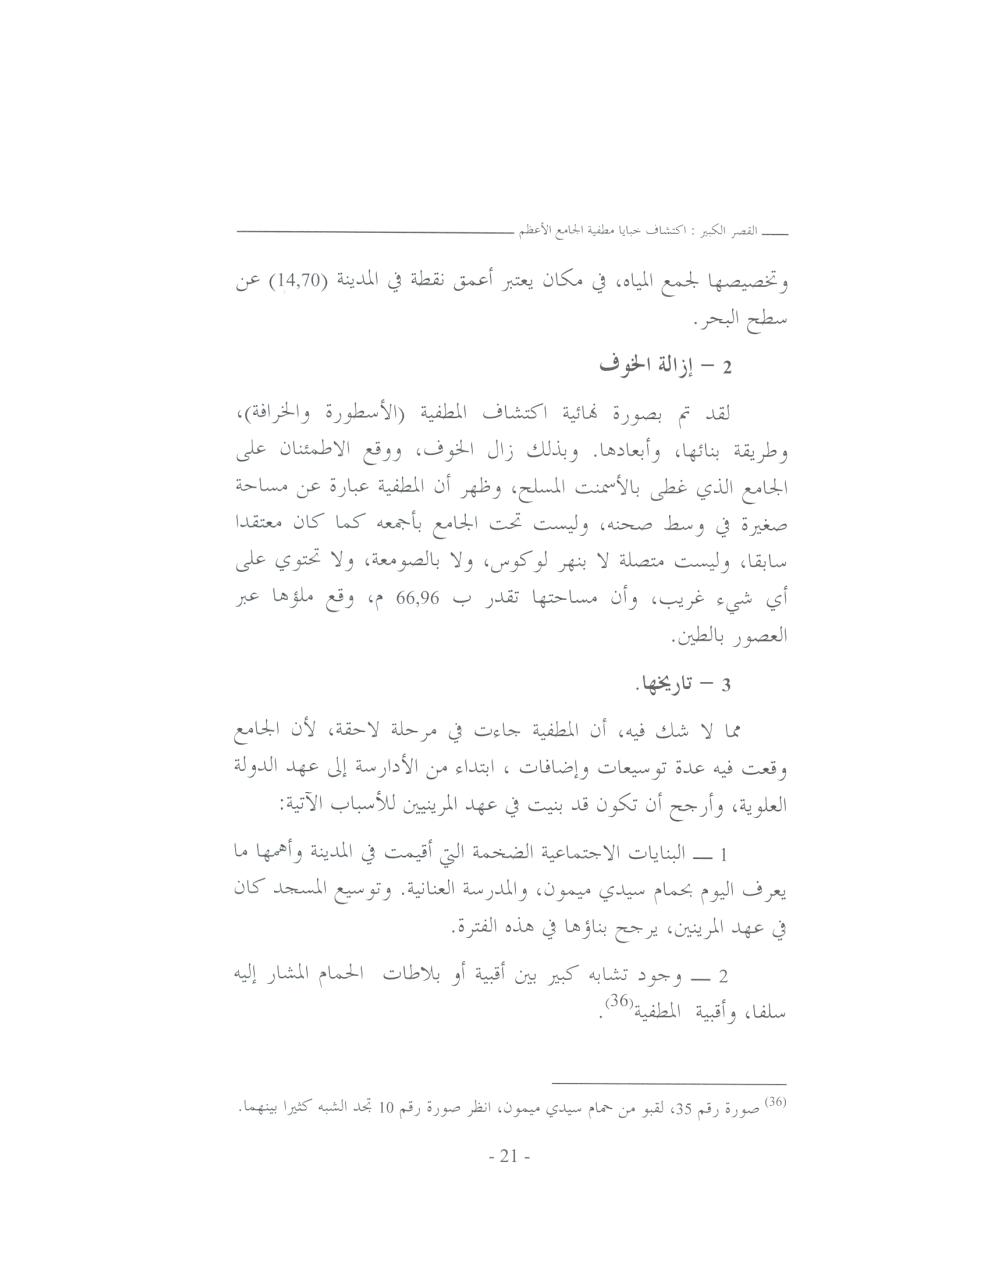 القصر الكبير : اكتشاف خبايا مطفية الجامع الأعظم
وتخصيصها لجمع المياه، في مكان يعتبر أعمق نقطة في المدينة (14,70) عن
سطح البحر.
2 – إزالة الخوف
لقد تم بصورة نهائية اكتشاف المطفية (الأسطورة والخرافة)،
وطريقة بنائها، وأبعادها. وبذلك زال الخوف، ووقع الاطمئنان على
الجامع الذي غطى بالأسمنت المسلح، وظهر أن المطفية عبارة عن مساحة
صغيرة في وسط صحنه، وليست تحت الجامع بأجمعه كما كان معتقدا
سابقا، وليست متصلة لا بنهر لوكوس، ولا بالصومعة، ولا تحتوي على
أي شيء غريب، وأن مساحتها تقدر ب 66,96 م، وقع ملؤها عبر
العصور بالطين.
3 – تاريخها.
مما لا شك فيه، أن المطفية جاءت في مرحلة لاحقة، لأن الجامع
وقعت فيه عدة توسيعات وإضافات ، ابتداء من الأدارسة إلى عهد الدولة
العلوية، وأرجح أن تكون قد بنيت في عهد المرينيين للأسباب الآتية:
1 — البنايات الاجتماعية الضخمة التي أقيمت في المدينة وأهمها ما
يعرف اليوم بحمام سيدي ميمون، والمدرسة العنانية. وتوسيع المسجد كان
في عهد المرينين، يرجح بناؤها في هذه الفترة.
2 — وجود تشابه كبير بين أقبية أو بلاطات الحمام المشار إليه
سلفا، وأقبية المطفية(36).
(36) صورة رقم 35، لقبو من حمام سيدي ميمون، انظر صورة رقم 10 تجد الشبه كثيرا بينهما.
- 21 -